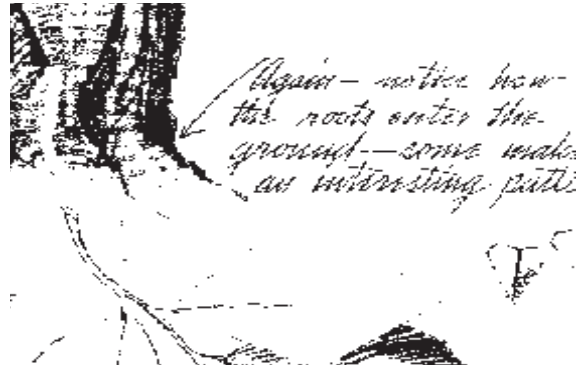 Again— notice how
the roots enter the
ground—some make
an interesting patte